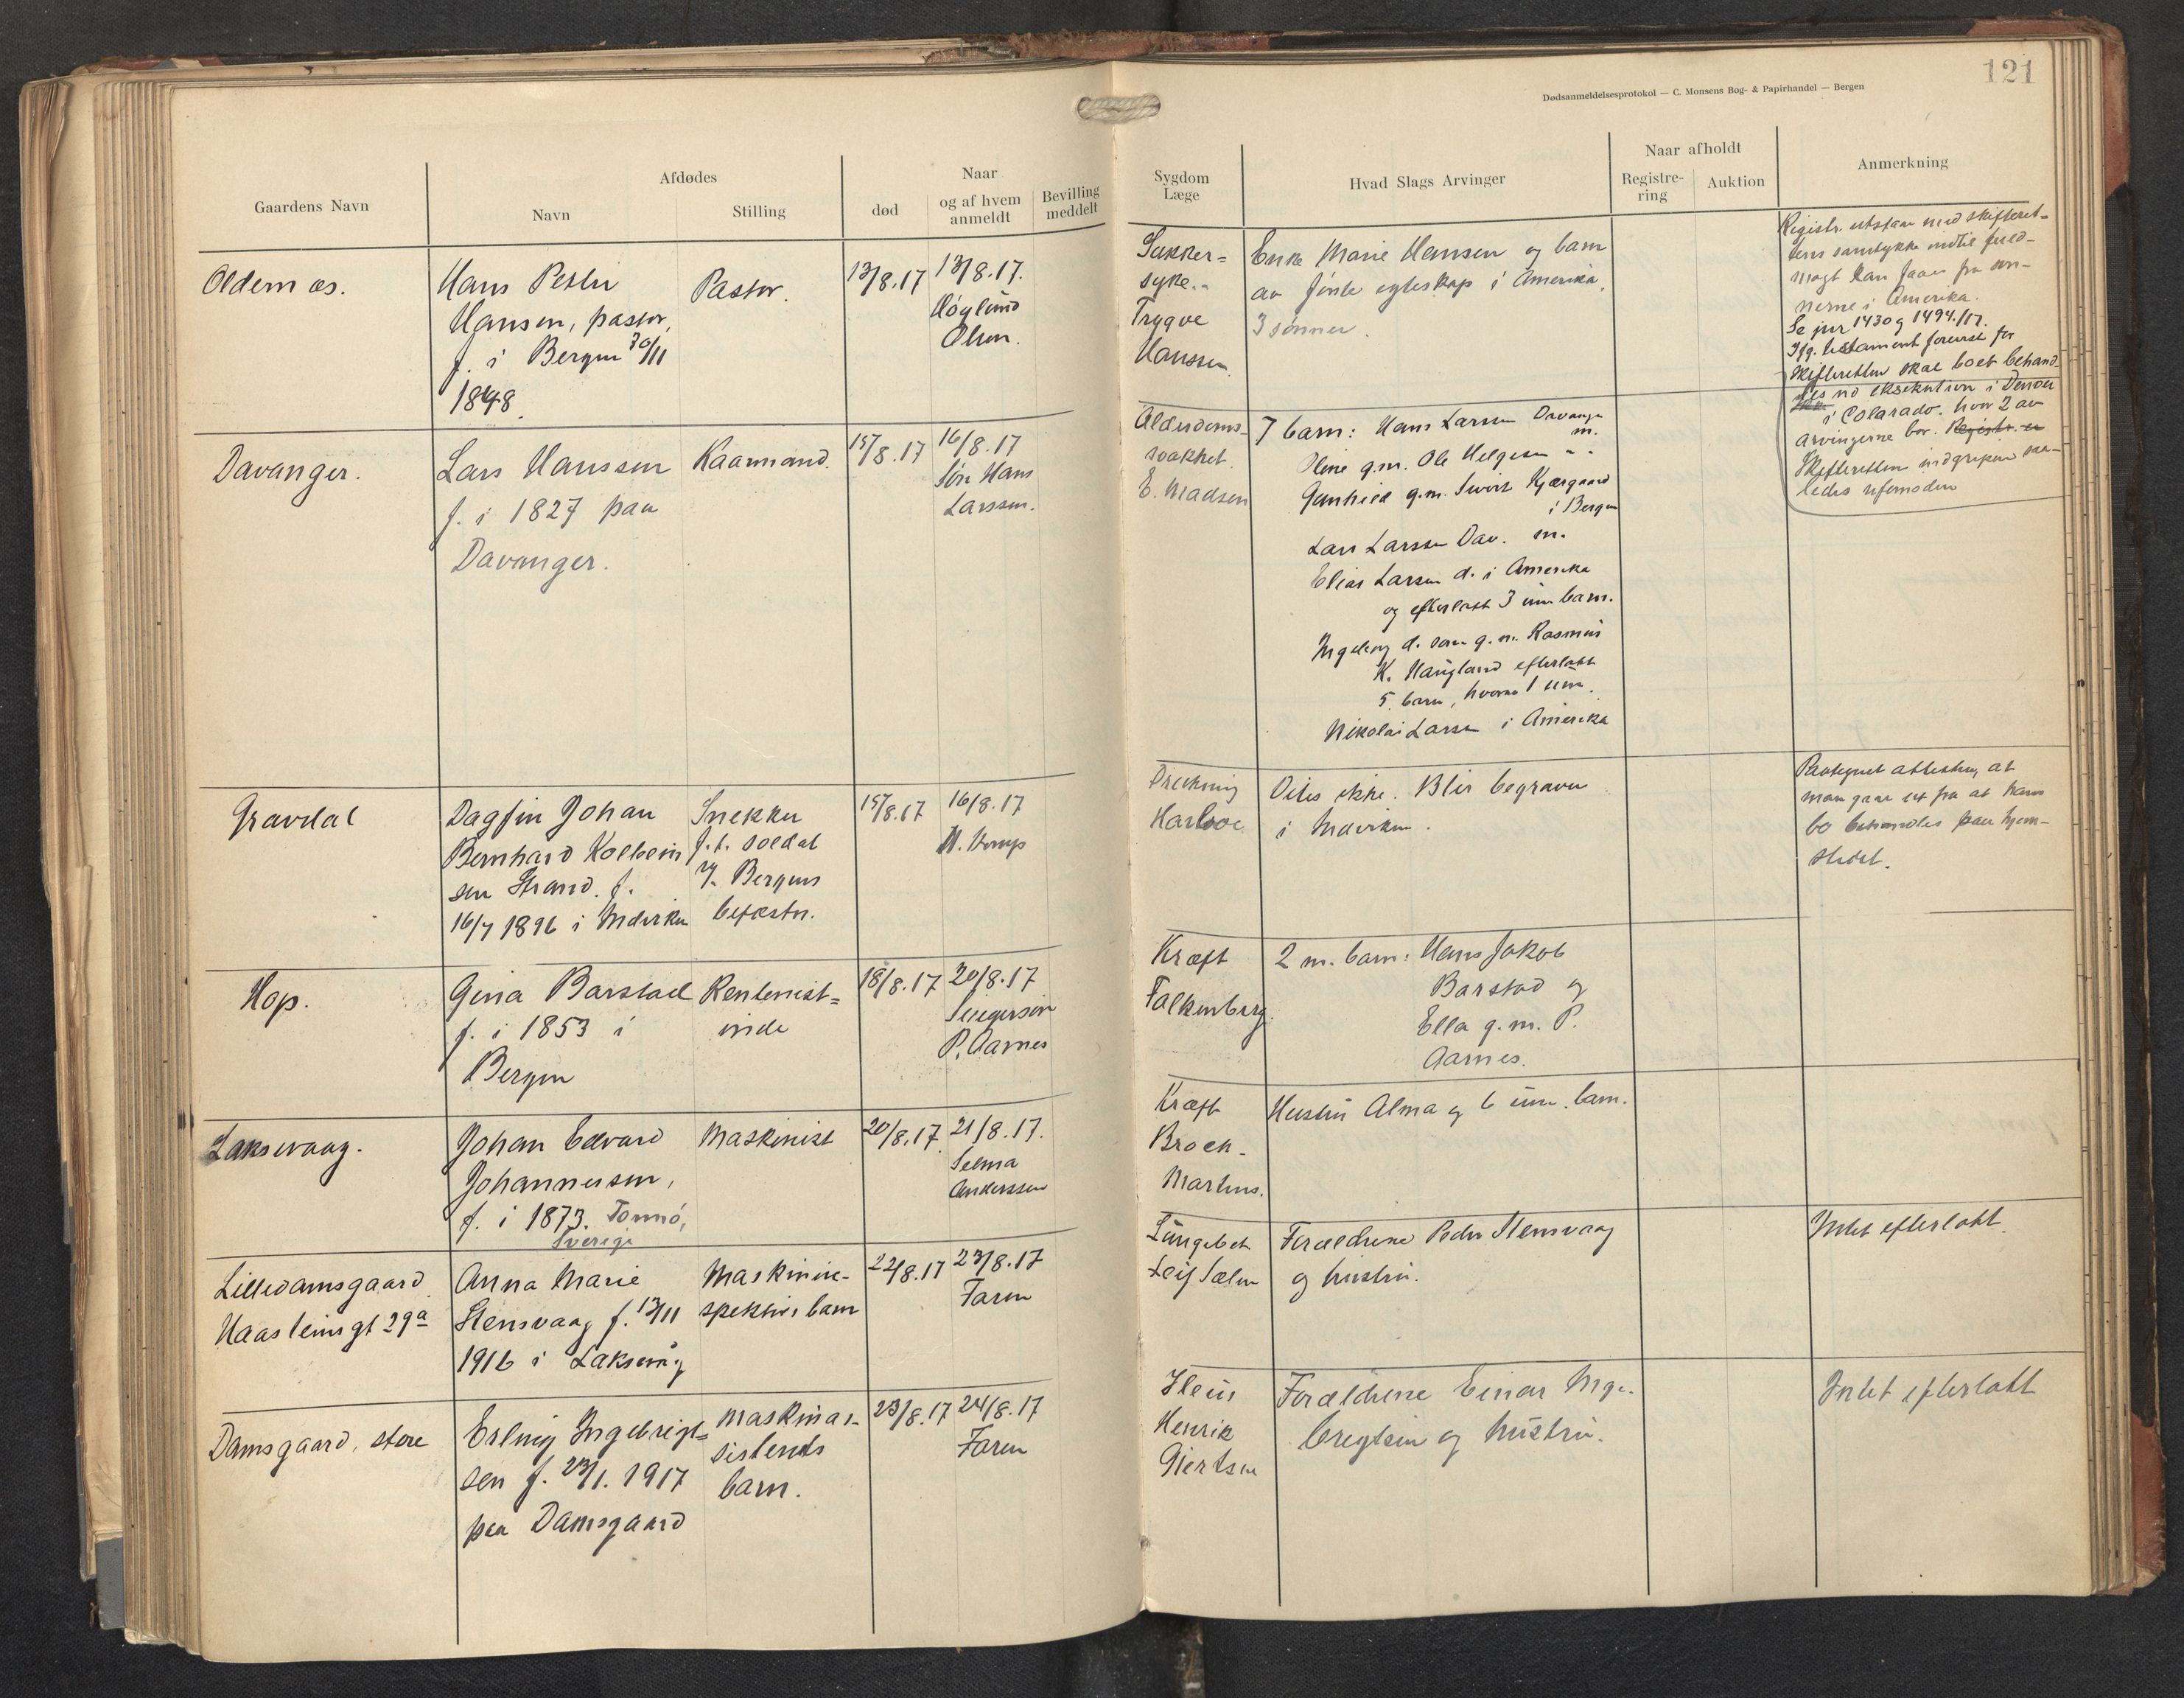 121
Dødsanmeldelsesprotokol — C. Monsens Bog- & Papirhandel — Bergen
Gaardens Navn
Afdødes
Navn
Stilling
Naar
død
og af hvem
anmeldt
Bevilling
meddelt
Sygdom
Læge
Hvad Slags Arvinger
Naar afholdt
Registre-
ring
Auktion
Anmerkning
Oldernæs.
Hans Petter
Hansen, pastor,
f. i Bergen 30/11
1848.
Pastor.
13/8.17
13/8.17.
Høylund
Olsen.
Sukker=
syke.
Trygve
Hanssen.
Enke Marie Hansen og barn
av første egteskap i Amerika.
3 sønner.
Registr. utstaar med skifteret-
tens samtykke indtil fuld-
magt kan faaes fra søn-
nerne i Amerika.
Se jnr 1430 og 1494/17.
Ifg. testament forevist for
skifteretten skal boet behand-
les ved eksekution i Denver
i Colorado. hvor 2 av
arvingerne bor. Registr. er
Skifteretten indgripen saa-
ledes ufornøden
Davanger.
Lars Hanssen
f. i 1827 paa
Davanger.
Kaarmand.
15/8.17
16/8.17
Søn Hans
Larssen.
Alderdoms-
svakhet.
E. Madsen
7 barn: Hans Larssen Davanger
m.
Oline g.m. Ole Helgesen " "
Gunhild g.m. Sivert Kjærgaard
i Bergen
Lars Larssen Dav. m.
Elias Larsen d. i Amerika
og efterlatt 3 um. barn.
Ingeborg d. som g.m. Rasmus
K. Haugland efterlatt
5 barn, hvorav 1 um.
Nikolai Larsen i Amerika
Gravdal
Dagfin Johan
Bernhard Kolbein
sen Strand. f.
16/7 1896 i Indviken
Snekker
f.t. soldat
v. Bergens
befæstn.
15/8.17
16/8.17
Drukning
Harboe
Vites ikke. Blir begravet
i Indviken.
Paategnet attesten, at
man gaar ut fra at hans
bo behandles paa hjem-
stedet.
Hop.
Gina Barstad
f. i 1853 i
Bergen
Rentenist=
inde
18/8.17
20/8.17
Svigersøn
P. Aarnes
Kræft
Falkenberg.
2 m. barn: Hans Jakob
Barstad og
Ella g.m. P.
Aarnes.
Laksevaag.
Johan Edvard
Johannessen,
f. i 1873. Tormø,
Sverige
Maskinist
20/8.17.
21/8.17.
Selma
Anderssen
Kræft
Broch-
Martens.
Hustru Alma og 6 um. barn.
Lilledamsgaard.
Haasteinsgt 29a
Anna Marie
Stensvaag f. 13/11
1916 i Laksevåg
Maskinin-
spektørs barn
22/8.17
23/8.17
Faren
Lungebet
Leif Sælen
Forældrene Peder Stensvaag
og hustru.
Intet efterlatt.
Damsgaard, store
Erling Ingebrigt=
sen f. 23/1. 1917
paa Damsgaard
Maskinas-
sistents
barn.
23/8.17
24/8.17
Faren
Henrik
Giertsen
Forældrene Einar Inge-
brigtsen og hustru.
Intet efterlatt